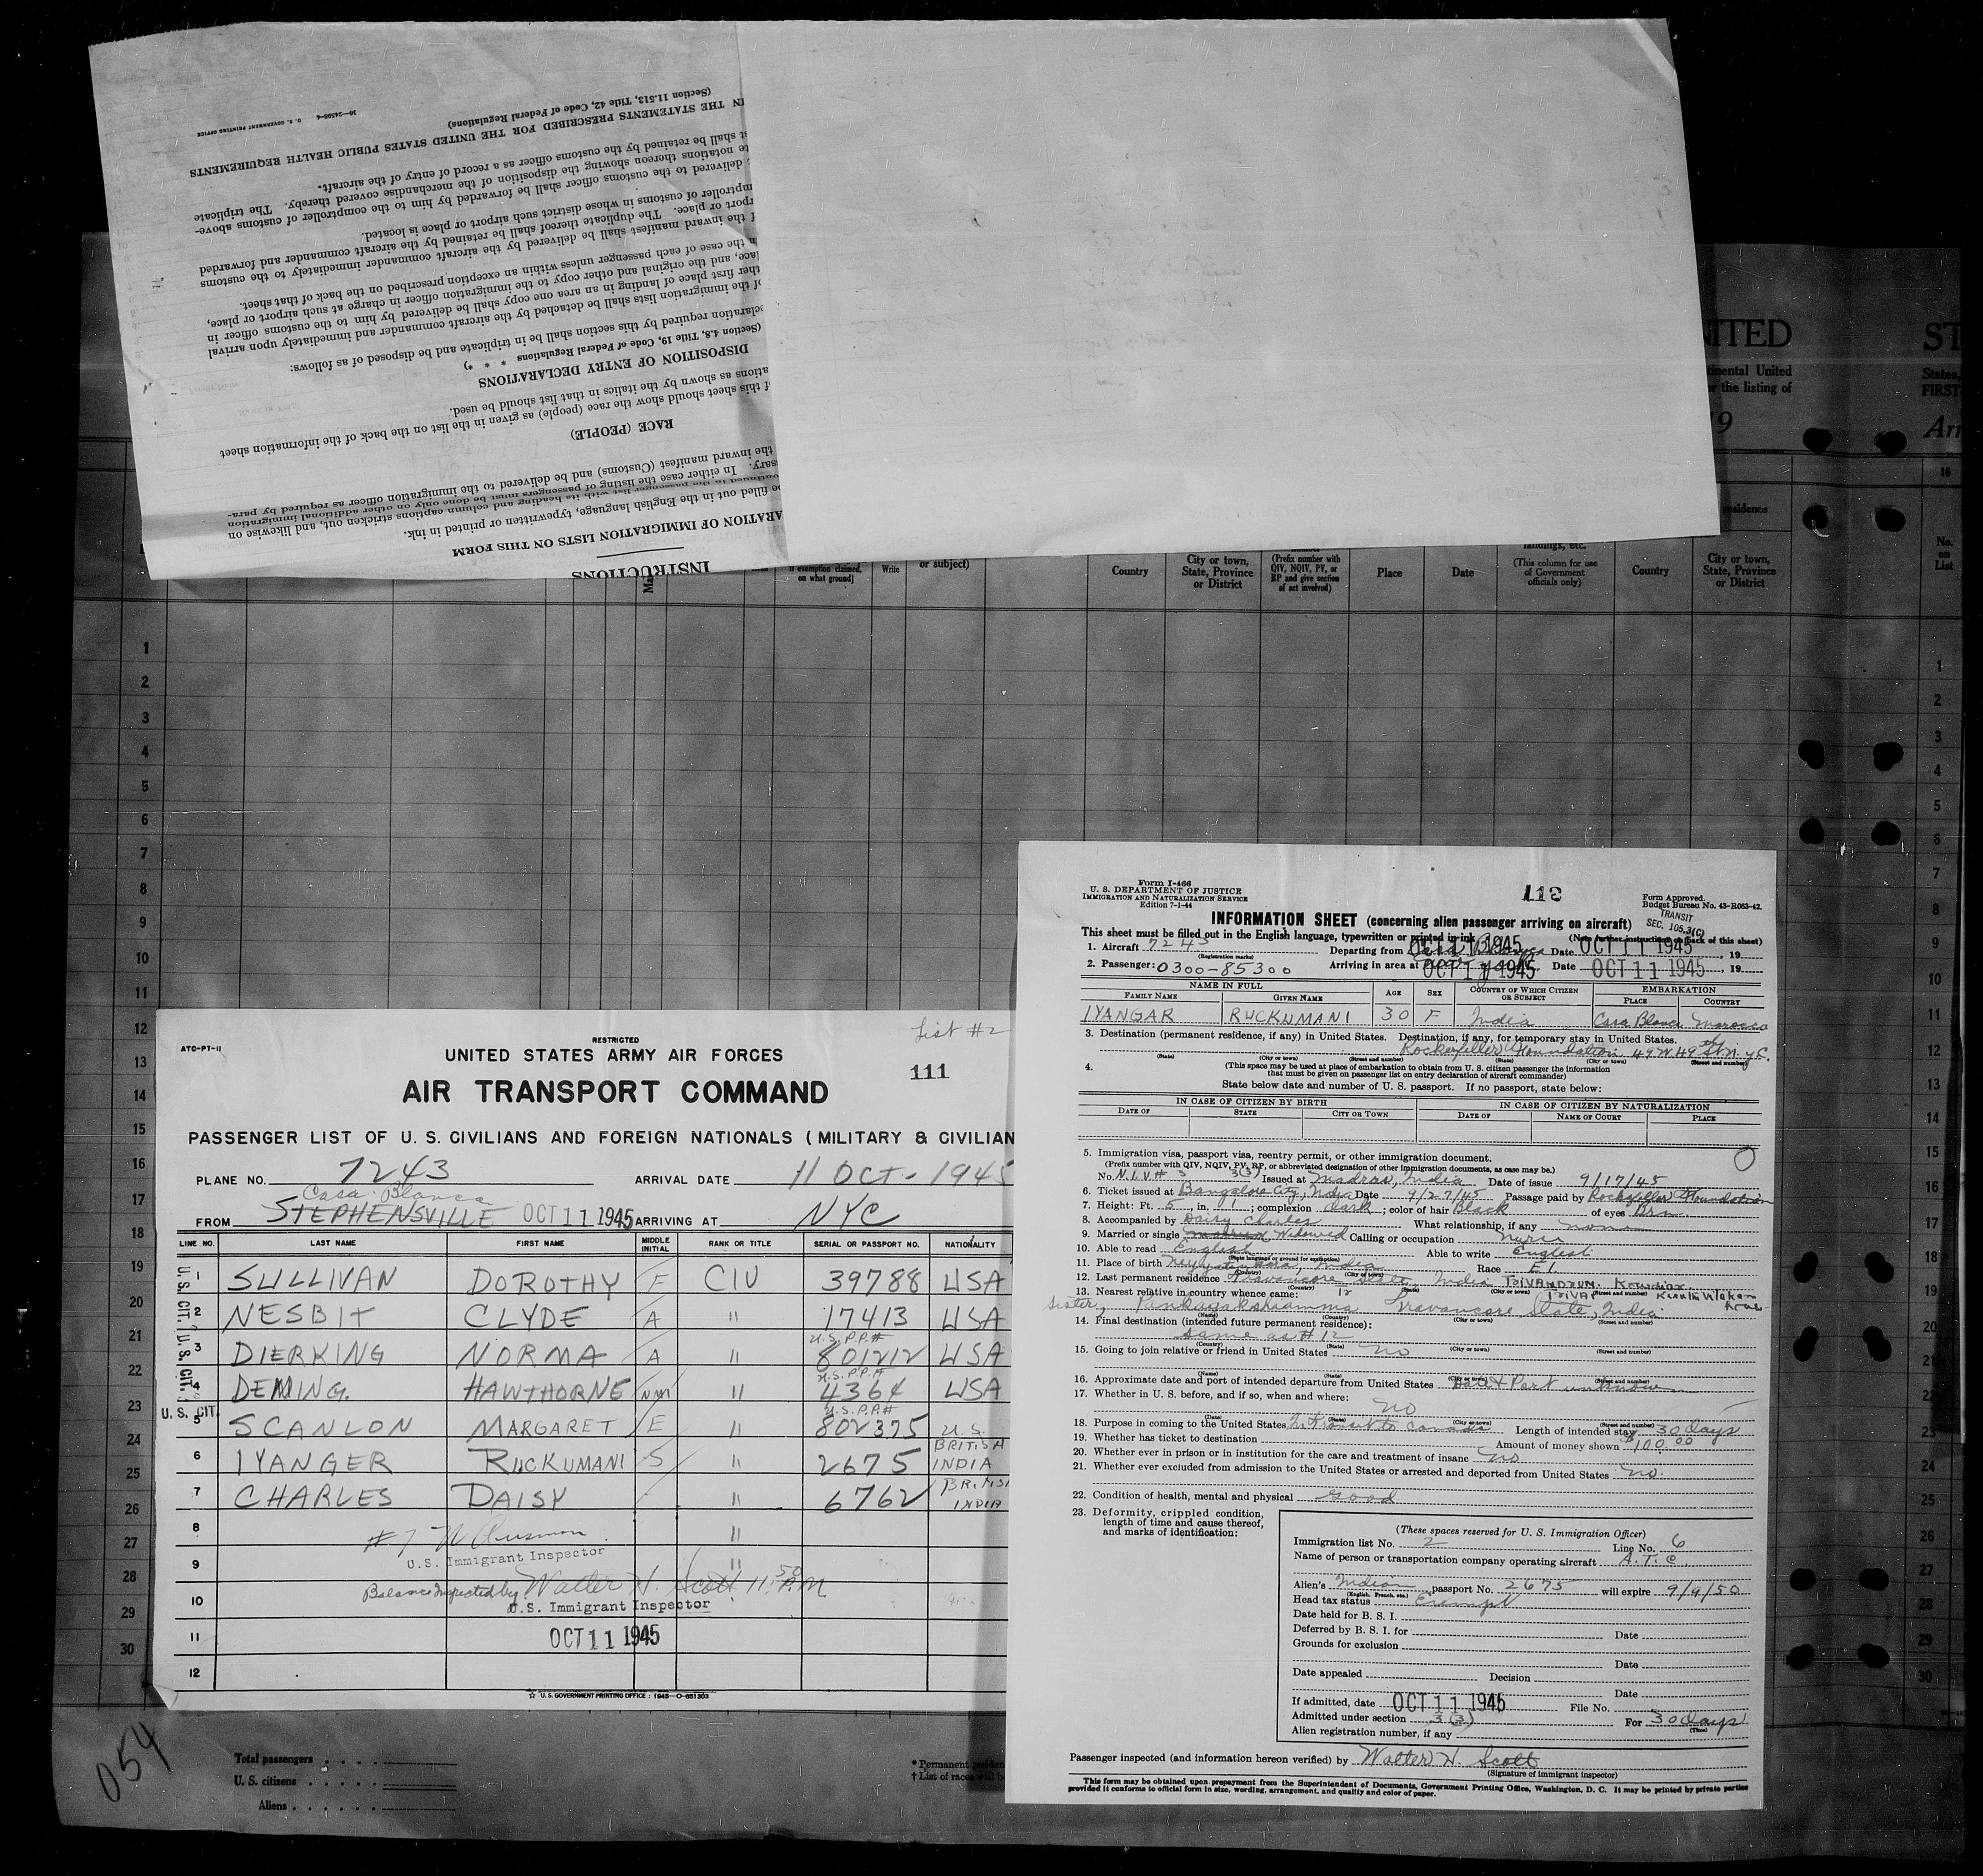 INSTRUCTIONS
ARATION OF IMMIGRATION LISTS ON THIS FORM
e filled out in the English language, typewritten or printed in ink.
ontinued in the passenger list with its heading and column captions stricken out, and likewise on
ssary. In either case the listing of passengers must be done only on other additional immigration
the inward manifest (Customs) and be delivered to the immigration officer as required by para-
RACE (PEOPLE)
f this sheet should show the race (people) as given in the list on the back of the information sheet
ations as shown by the italics in that list should be used.
DISPOSITION OF ENTRY DECLARATIONS
(Section 4.8, Title 19, Code of Federal Regulations * * *)
claration required by this section shall be in triplicate and be disposed of as follows:
of the immigration lists shall be detached by the aircraft commander and immediately upon arrival
ther first place of landing in an area one copy shall be delivered by him to the customs officer in
lace, and the original and other copy to the immigration officer in charge at such airport or place,
n the case of each passenger unless within an exception prescribed on the back of that sheet.
f the inward manifest shall be delivered by the aircraft commander immediately to the customs
rport or place. The duplicate thereof shall be retained by the aircraft commander and forwarded
mptroller of customs in whose district such airport or place is located.
s delivered to the customs officer shall be forwarded by him to the comptroller of customs above-
te notations thereon showing the disposition of the merchandise covered thereby. The triplicate
st shall be retained by the customs officer as a record of entry of the aircraft.
IN THE STATEMENTS PRESCRIBED FOR THE UNITED STATES PUBLIC HEALTH REQUIREMENTS
(Section 11.513, Title 42, Code of Federal Regulations)
U. S. GOVERNMENT PRINTING OFFICE
NITED ST
tinental United States,
or the listing of FIRST
19 Arr
16
residence
if exemption claimed, on what ground) Write or subject) Country City or town, State, Province or District (Prefix number with QIV, NQIV, PV, or RP and give section of act involved) Place Date landings, etc. (This column for use of Government officials only) Country City or town, State, Province or District No. on List
1
2
3
4
5
6
7
8
9
10
11
12
13
14
15
16
17
18
19
20
21
22
23
24
25
26
27
28
29
30
List #2
ATC-PT-11
RESTRICTED
UNITED STATES ARMY AIR FORCES
111
AIR TRANSPORT COMMAND
PASSENGER LIST OF U. S. CIVILIANS AND FOREIGN NATIONALS (MILITARY & CIVILIAN
PLANE NO. 7243 ARRIVAL DATE 11 OCT - 1945
Casa Blanca
FROM STEPHENSVILLE OCT 11 1945 ARRIVING AT NYC
LINE NO. LAST NAME FIRST NAME MIDDLE INITIAL RANK OR TITLE SERIAL OR PASSPORT NO. NATIONALITY
U.S. CIT. 1 SULLIVAN DOROTHY F CIV 39788 USA
2 NESBIT CLYDE A " 17413 USA
U.S. P.P.#
U.S. CIT. 3 DIERKING NORMA A " 801212 USA
U.S. P.P.#
4 DEMING. HAWTHORNE NMI " 4364 USA
U.S. P.P.#
U. S. CIT. 5 SCANLON MARGARET E " 802375 U.S.
6 IYANGER RUCKUMANI S " 2675 BRITISH INDIA
7 CHARLES DAISY " 6762 BRITISH INDIA
8 "
U.S. Immigrant Inspector
9 "
Balance Inspected by Walter H. Scott 11:50 P.M
10 U.S. Immigrant Inspector
11 OCT 11 1945
12
☆ U. S. GOVERNMENT PRINTING OFFICE : 1945—O-651303
054
Total passengers . . . .
U. S. citizens . . . . .
Aliens . . . . . .
* Permanent residen
† List of races will b
Form I-466
U. S. DEPARTMENT OF JUSTICE
IMMIGRATION AND NATURALIZATION SERVICE
Edition 7-1-44
118
Form Approved.
Budget Bureau No. 43-R063-42.
TRANSIT
SEC. 105.3(C)
INFORMATION SHEET (concerning alien passenger arriving on aircraft)
This sheet must be filled out in the English language, typewritten or printed in ink (Note further instructions on back of this sheet)
1. Aircraft 7243 Departing from Casa Blanca OCT 11 1945 Date OCT 11 1945, 19
(Registration marks)
2. Passenger: 0300-85300 Arriving in area at OCT 11 1945 Date OCT 11 1945, 19
NAME IN FULL AGE SEX COUNTRY OF WHICH CITIZEN OR SUBJECT EMBARKATION
FAMILY NAME GIVEN NAME PLACE COUNTRY
IYANGAR RUCKUMANI 30 F India Casa Blanca Morocco
3. Destination (permanent residence, if any) in United States. Destination, if any, for temporary stay in United States.
Rockefeller Foundation 49 W 49th St. N.Y.C.
(State) (City or town) (Street and number) (State) (City or town) (Street and number)
4. (This space may be used at place of embarkation to obtain from U. S. citizen passenger the information
that must be given on passenger list on entry declaration of aircraft commander)
State below date and number of U. S. passport. If no passport, state below:
IN CASE OF CITIZEN BY BIRTH IN CASE OF CITIZEN BY NATURALIZATION
DATE OF STATE CITY OR TOWN DATE OF NAME OF COURT PLACE
5. Immigration visa, passport visa, reentry permit, or other immigration document.
(Prefix number with QIV, NQIV, PV, RP, or abbreviated designation of other immigration documents, as case may be.)
No. N.I.V # 3 3(3) Issued at Madras, India Date of issue 9/17/45
6. Ticket issued at Bangalore City, India Date 9/27/45 Passage paid by Rockefeller Foundation
7. Height: Ft. 5, in. 1; complexion dark; color of hair Black of eyes Brn.
8. Accompanied by Daisy Charles What relationship, if any none
9. Married or single married Widowed Calling or occupation Nurse
10. Able to read English Able to write English
(State language or ground for exemption)
11. Place of birth India Race E I.
12. Last permanent residence Travancore State, India TRIVANDRUM.
13. Nearest relative in country whence came:
Sister, Pankayakshiamma Travancore State, India
14. Final destination (intended future permanent residence):
same as # 12
15. Going to join relative or friend in United States No
16. Approximate date and port of intended departure from United States Date & Port unknown
17. Whether in U. S. before, and if so, when and where: No
18. Purpose in coming to the United States In transit to Canada Length of intended stay 30 days
19. Whether has ticket to destination Amount of money shown $100.00
20. Whether ever in prison or in institution for the care and treatment of insane No
21. Whether ever excluded from admission to the United States or arrested and deported from United States No.
22. Condition of health, mental and physical Good
23. Deformity, crippled condition,
length of time and cause thereof,
and marks of identification:
(These spaces reserved for U. S. Immigration Officer)
Immigration list No. 2 Line No. 6
Name of person or transportation company operating aircraft A.T.C.
Alien's Indian passport No. 2675 will expire 9/4/50
(English, French, etc.)
Head tax status Exempt
Date held for B. S. I.
Deferred by B. S. I. for Date
Grounds for exclusion
Date
Date appealed Decision
Date
If admitted, date OCT 11 1945 File No.
Admitted under section 3(3) For 30 days
(Time)
Alien registration number, if any
Passenger inspected (and information hereon verified) by Walter H. Scott
(Signature of immigrant inspector)
This form may be obtained upon prepayment from the Superintendent of Documents, Government Printing Office, Washington, D. C. It may be printed by private parties
provided it conforms to official form in size, wording, arrangement, and quality and color of paper.